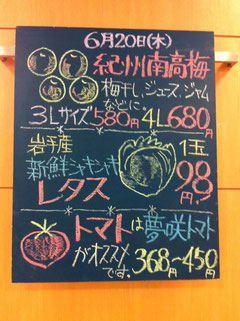 6月20日(木)
紀州南高梅
梅干し、ジュース、ジャム
などに。
3Lサイズ580円 4L680円
岩手産
新鮮シャキシャキ
レタス
1玉
98円
トマトは夢咲トマト
がオススメ
です。
368円~450円